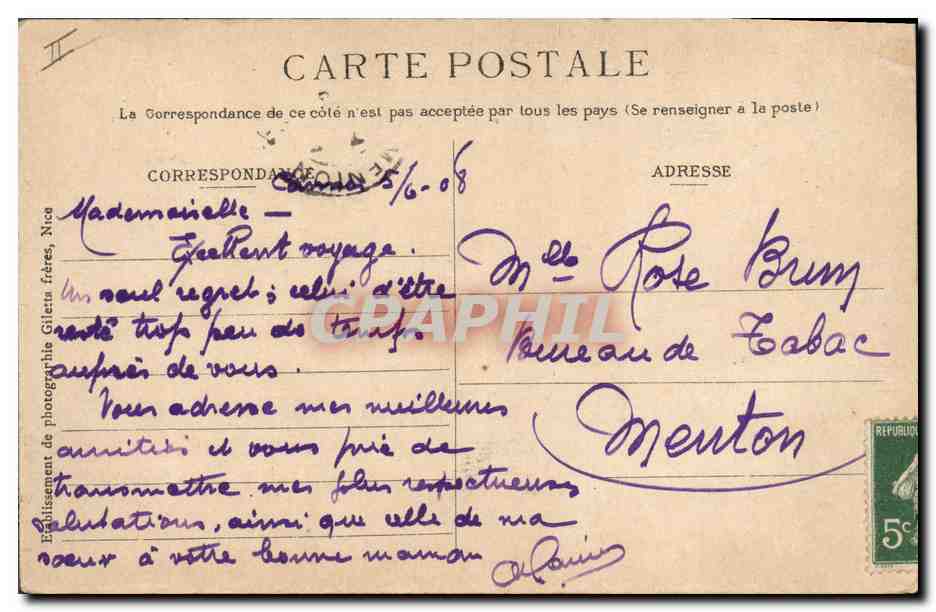 II
CARTE POSTALE
La Correspondance de ce côté n'est pas acceptée par tous les pays (Se renseigner à la poste)
CORRESPONDANCE
MENTON
Cannes 5/6-08
Mademoiselle —
Excellent voyage.
Un seul regret ; celui d'être
resté trop peu de temps
auprès de vous.
Vous adresse mes meilleures
amitiés et vous prie de
transmettre mes plus respectueuses
salutations, ainsi que celle de ma
soeur à votre bonne maman
ADRESSE
Mlle Rose Brun
Bureau de Tabac
Menton
REPUBLIQU
5c
Etablissement de photographie Giletta frères, Nice
CPAPHIL